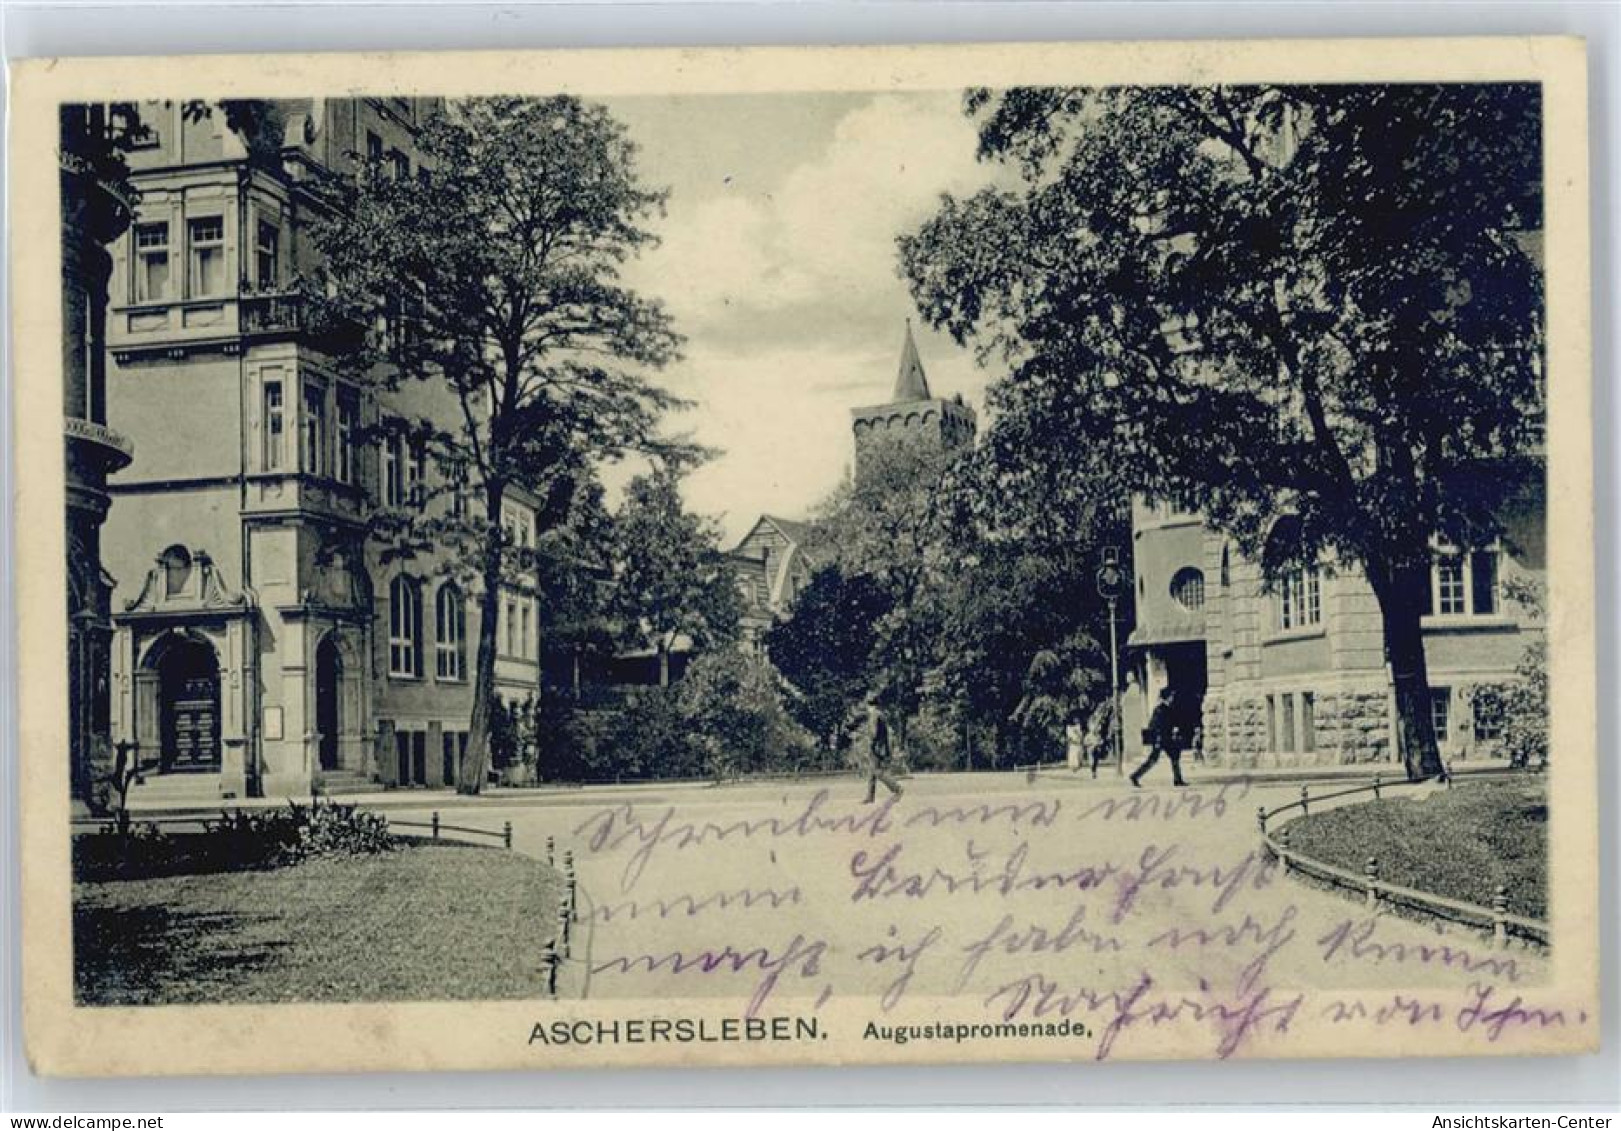 Schreibet mir was
mein Bruder Horst
macht, ich habe noch keine
Nachricht von Ihm.
ASCHERSLEBEN. Augustapromenade.
AnsichtsKarten-Center